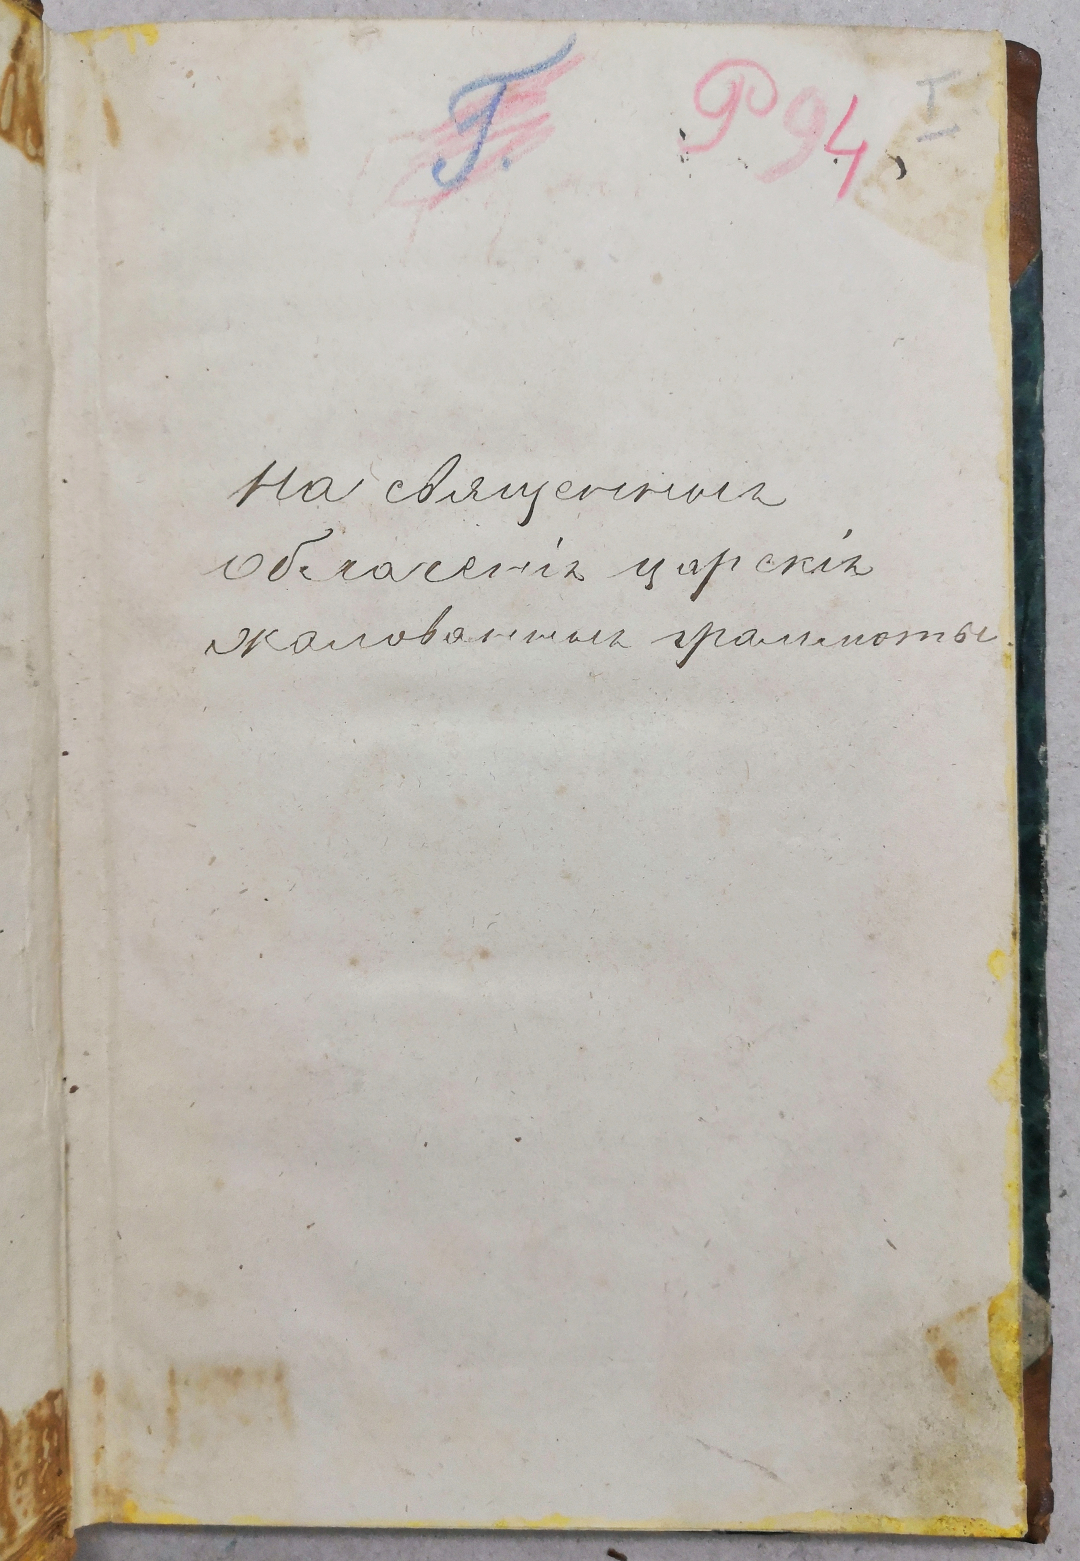 Г. Р94 I
На священныя
облаченія царскія
жалованныя граммоты.